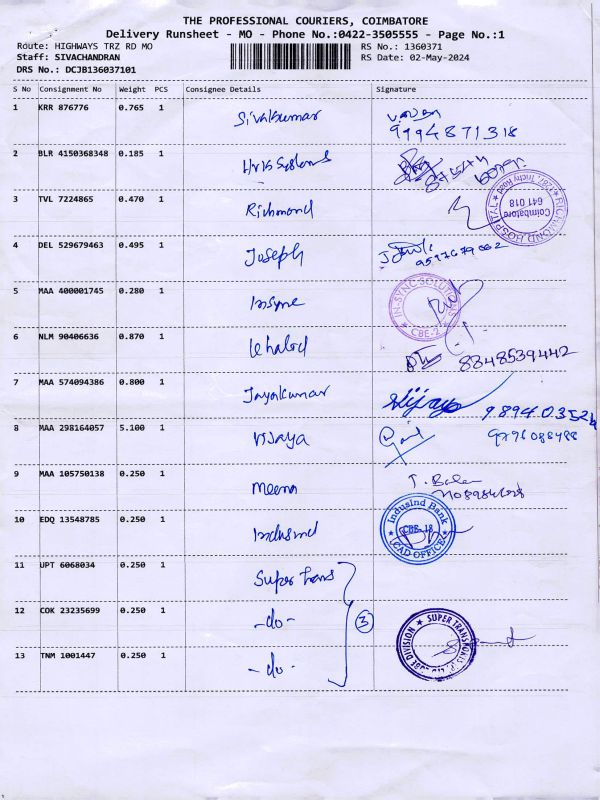 THE PROFESSIONAL COURIERS, COIMBATORE
Delivery Runsheet - MO - Phone No.:0422-3505555 - Page No.:1
Route: HIGHWAYS TRZ RD MO RS No.: 1360371
Staff: SIVACHANDRAN RS Date: 02-May-2024
DRS No.: DCJB136037101
S No Consignment No Weight PCS Consignee Details Signature
1 KRR 876776 0.765 1 Sivakumar
9994871318
2 BLR 4150368348 0.185 1 Systems
3 TVL 7224865 0.470 1 Richmond
RICHMOND HOSPITAL 1287, Trichy Road Coimbatore 641 018
4 DEL 529679463 0.495 1 Joseph
5 MAA 400001745 0.280 1 Insync
IN-SYNC SOLUTIONS CBE-2
6 NLM 90406636 0.870 1
8848539442
7 MAA 574094386 0.800 1 Jayakumar
8 MAA 298164057 5.100 1 Vijaya
9 MAA 105750138 0.250 1 Meena
10 EDQ 13548785 0.250 1 Indusind
IndusInd Bank CBE-18 CAD OFFICE
11 UPT 6068034 0.250 1 Super Trans
12 COK 23235699 0.250 1 -do- 3
SUPER TRANSPORTS DIVISION
13 TNM 1001447 0.250 1 -do-